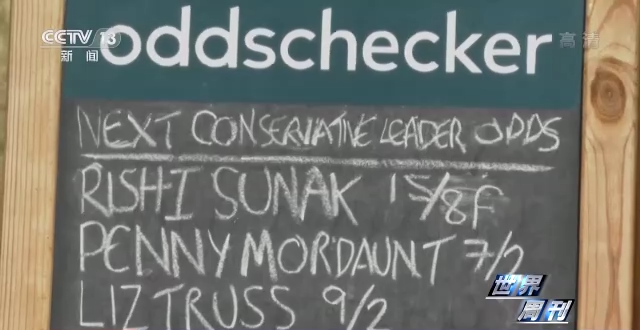 CCTV 13
新闻
oddschecker
高清
NEXT CONSERVATIVE LEADER ODDS
RISHI SUNAK 15/8F
PENNY MORDAUNT 7/2
LIZ TRUSS 9/2
世界
周刊